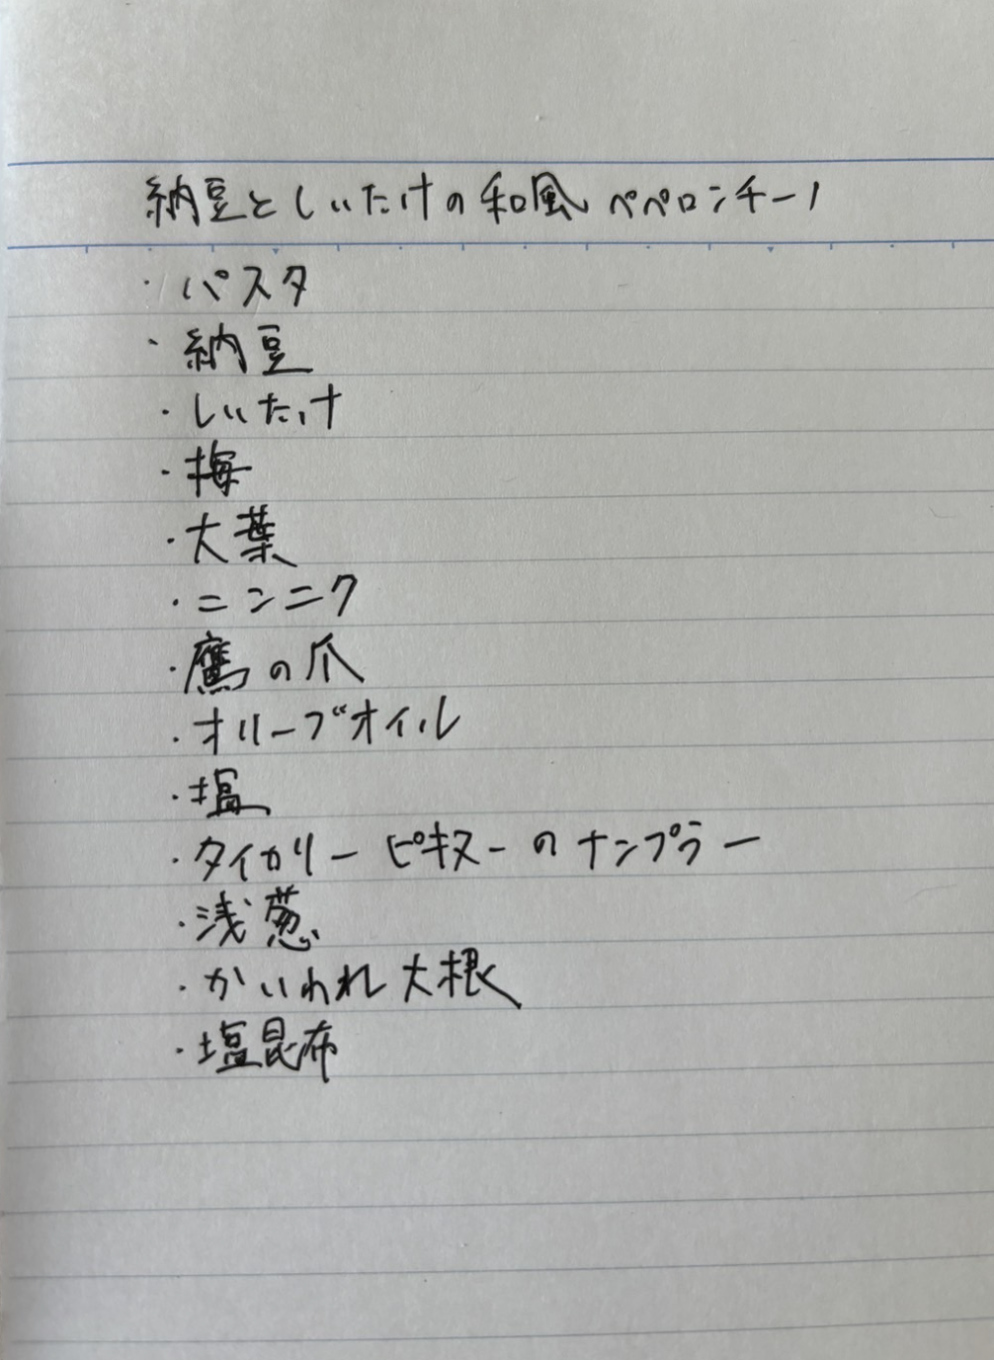 納豆としいたけの和風ペペロンチーノ
・パスタ
・納豆
・しいたけ
・梅
・大葉
・ニンニク
・鷹の爪
・オリーブオイル
・塩
・タイカリーピキヌーのナンプラー
・浅葱
・かいわれ大根
・塩昆布